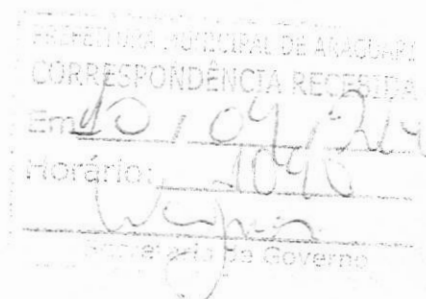 PREFEITURA MUNICIPAL DE ARAGUARI
CORRESPONDÊNCIA RECEBIDA
Em 10 / 04 /
Horário: 1040
Secretaria de Governo